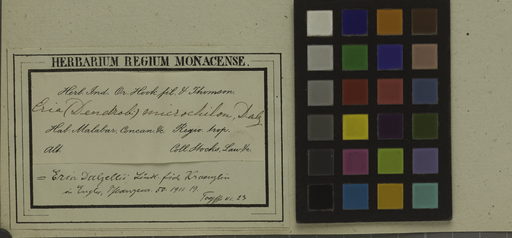 HERBARIUM REGIUM MONACENSE.
Herb. Ind. Or. Hook. fil. & Thomson.
Eria (Dendrob.) microchilon, Dalz.
Hab. Malabar, Concan &c. Regio trop.
Alt. Coll. Stocks, Law &c.
= Eria Dalzellii Lindl. fide Kraenzlin
in Engler, Pflanzenr. 50. 1911.